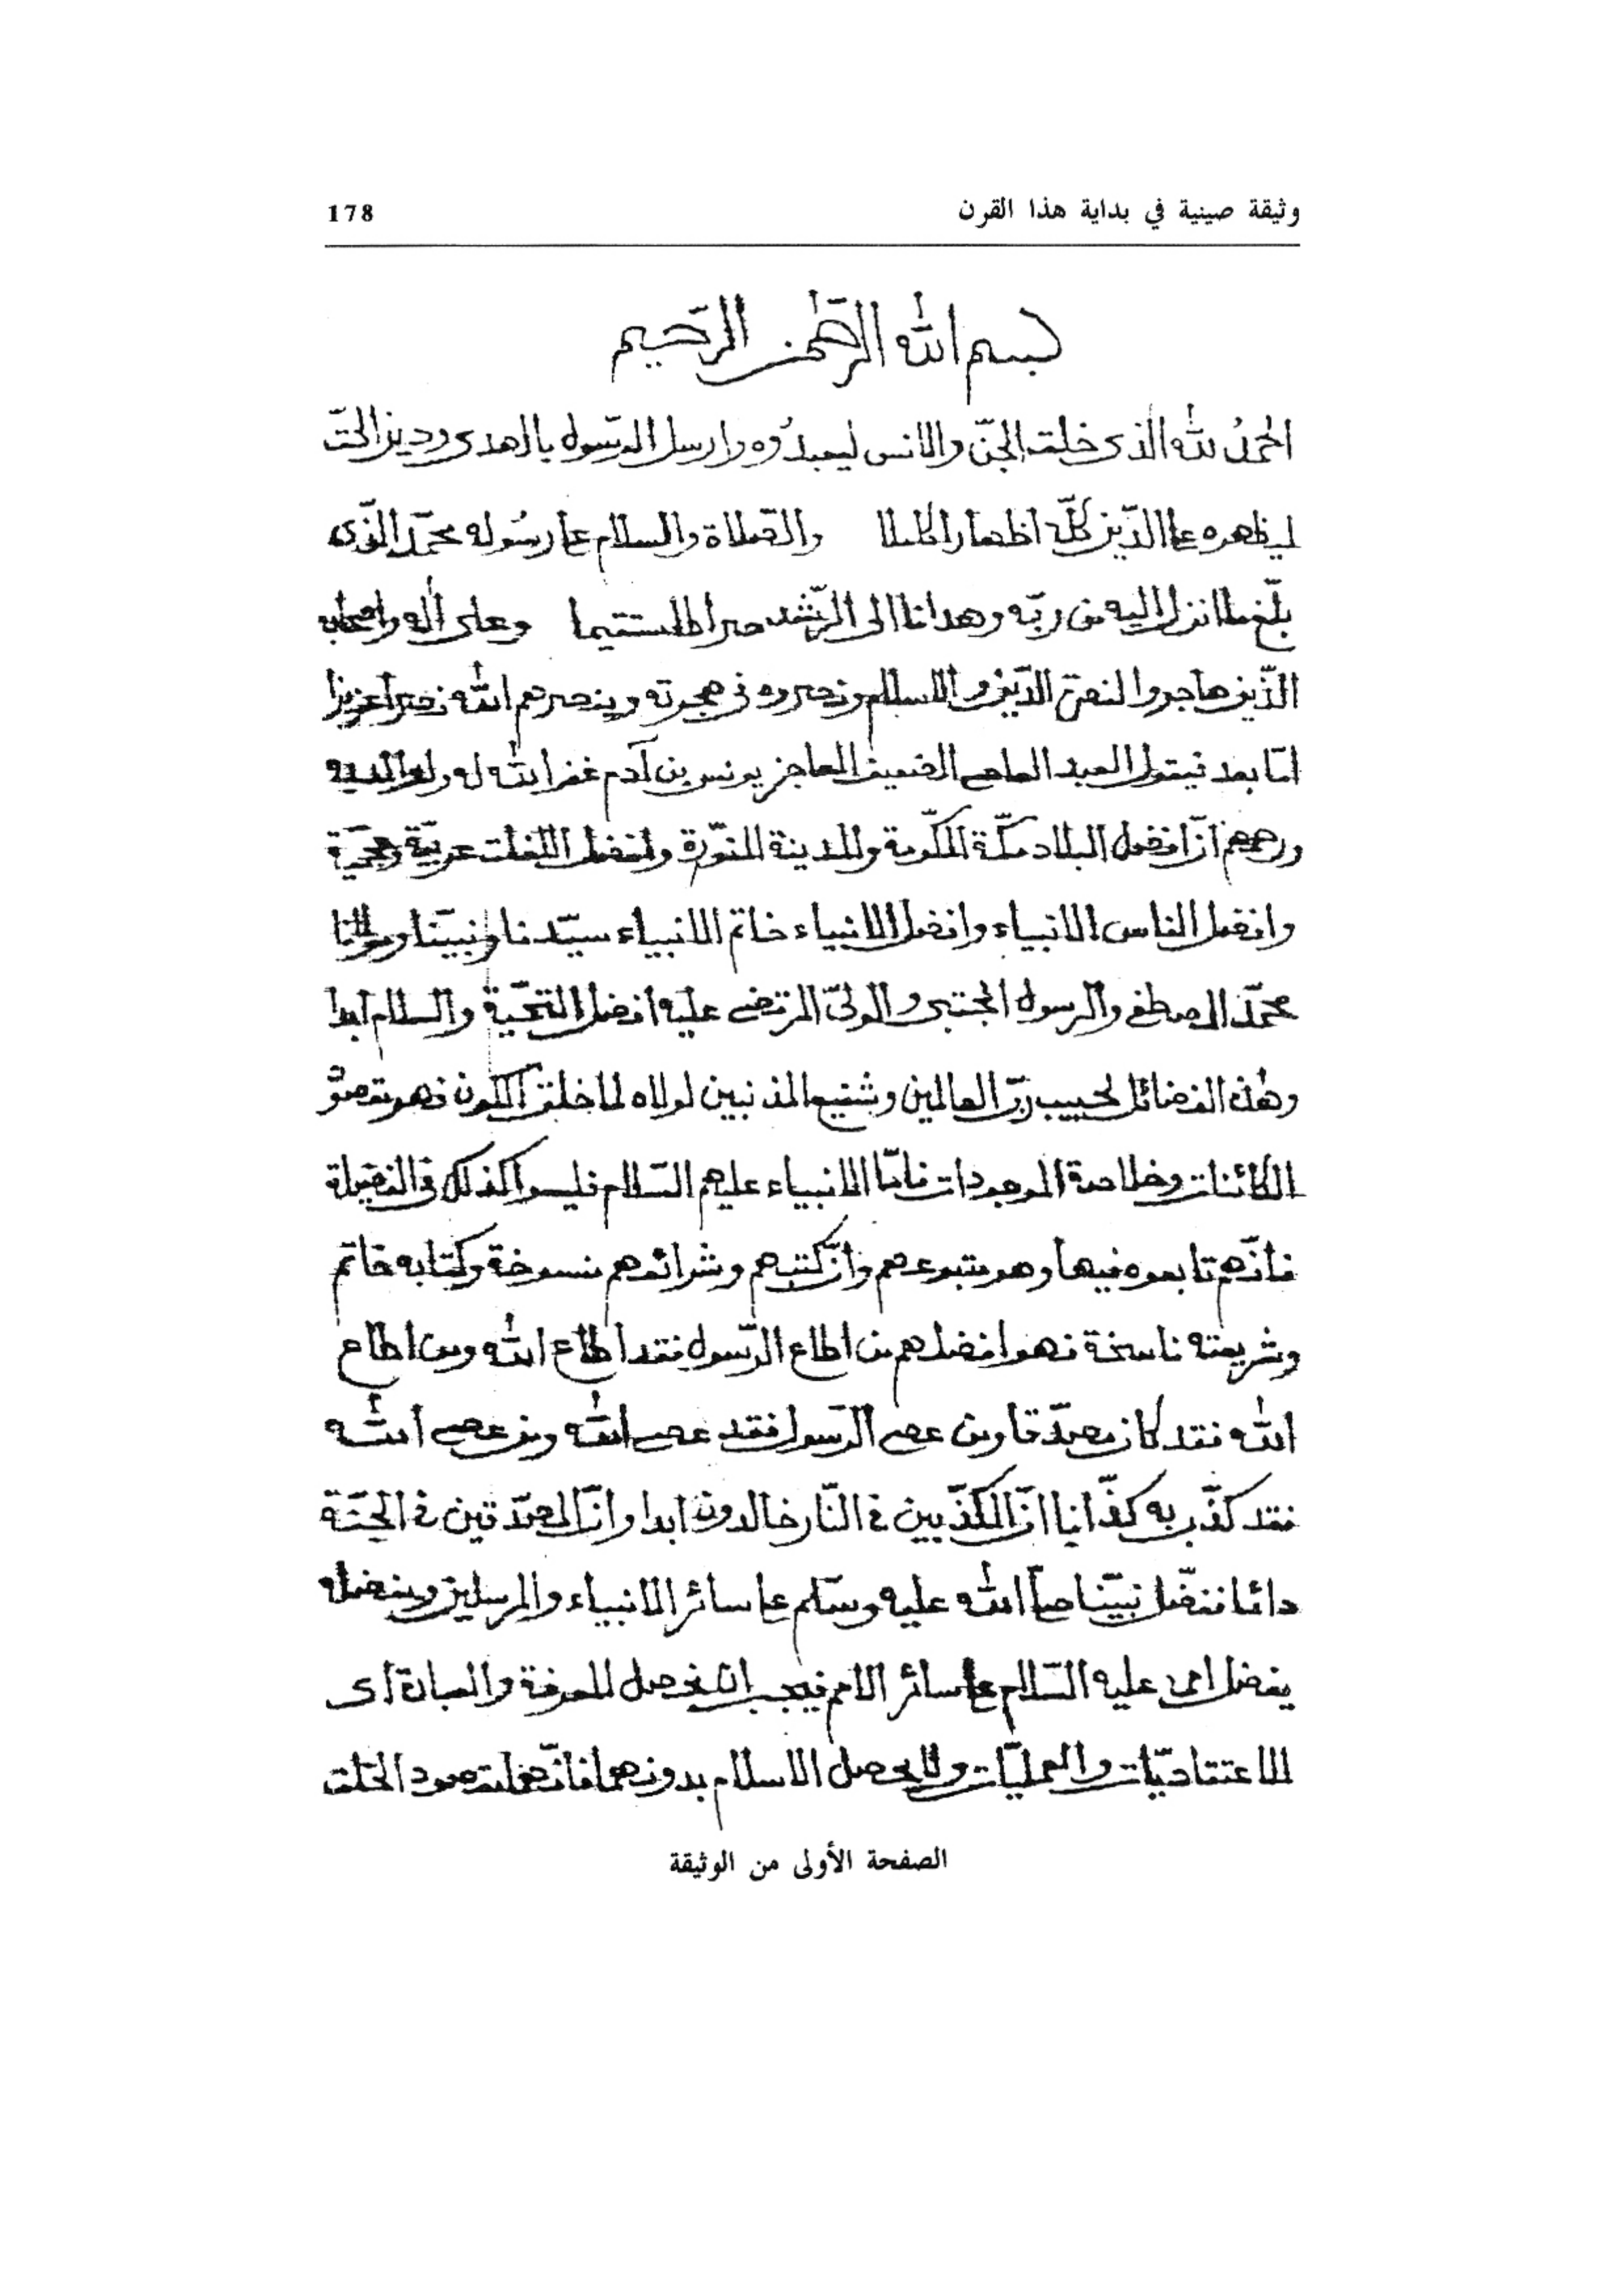 وثيقة صينية في بداية هذا القرن 178
بسم الله الرحمن الرحيم
الحمدُ لله الذى خلق الجنّ والانس ليعبدُوه وارسل الرّسول بالهدى ودين الحقّ
ليظهره على الدّين كلّه اظهارا كاملا والصّلاة والسلام على رسُوله محمّد الذّى
بلّغ ما انزل اليه من ربّه وهدانا الى الرّشد صراطا مستقيما وعلى آله واصحابه
الذّين هاجروا الدّين والاسلام ونصروه فى هجرته وينصرهم الله نصرا عزيزا
امّا بعد فيقول العبد العاصى الضعيف العاجز يونس بن آدم غفر الله له ولوالديه
ورحمهم انّ افضل البلاد مكّة المكرّمة والمدينة المنوّرة وافضل اللغات عربيّة
وافضل الناس الانبياء وافضل الانبياء خاتم الانبياء سيّدنا ونبيّنا ومولانا
محمّد المصطفى والرسول المجتبى والولىّ المرتضى عليه افضل التحيّة والسلام ابدا
وهذه الفضائل لحبيب ربّ العالمين وشفيع المذنبين لولاه لما خلق الكون فهو
الكائنات وخلاصة الموجودات فامّا الانبياء عليهم السّلام فليسوا كذلك فى الفضيلة
فانّهم تابعوه فيها وهو متبوعهم وانّ كتبهم وشرائعهم منسوخة وكتابه خاتم
وشريعته ناسخة فهو افضلهم من اطاع الرّسول فقد اطاع الله ومن اطاع
الله فقد كان مصدّقا ومن عصى الرّسول فقد عصى الله ومن عصى الله
فقد كذّب به كذّابا انّ المكذّبين فى النّار خالدون ابدا وانّ المصدّقين فى الجنّة
دائما نفضّل نبيّنا صلى الله عليه وسلّم على سائر الانبياء والمرسلين وبفضله
يفضل عليه السّلام على سائر الامم فيجب ان نحصل المعرفة والعبادة اى
الاعتقاديّات والعمليّات ولا يحصل الاسلام بدونهما الخلق
الصفحة الأولى من الوثيقة